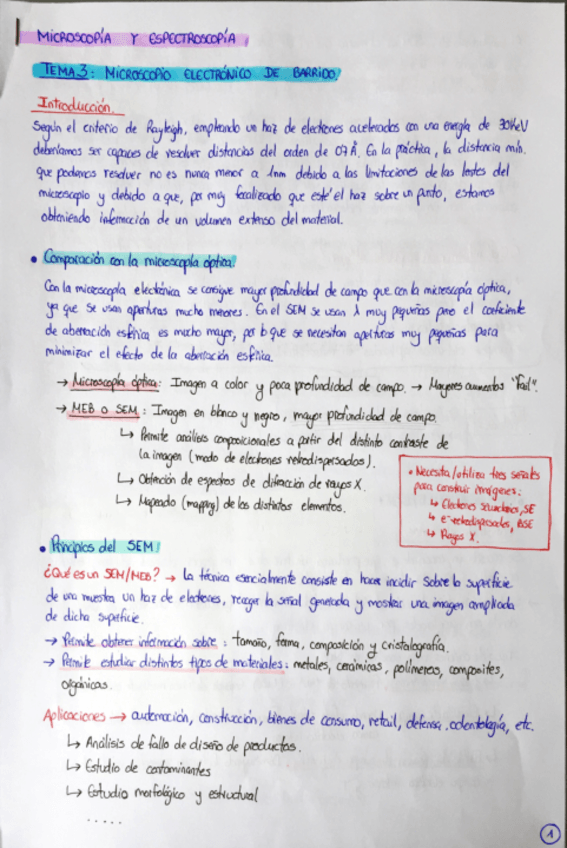 MICROSCOPÍA Y ESPECTROSCOPÍA
TEMA 3: MICROSCOPIO ELECTRÓNICO DE BARRIDO.
Introducción.
Según el criterio de Rayleigh, empleando un haz de electrones acelerados con una energía de 30KeV
deberíamos ser capaces de resolver distancias del orden de 07 Å. En la práctica, la distancia mín.
que podamos resolver no es nunca menor a 1nm debido a las limitaciones de las lentes del
microscopio y debido a que, por muy focalizado que esté el haz sobre un punto, estamos
obteniendo información de un volumen extenso del material.
• Comparación con la microscopía óptica.
Con la microscopía electrónica se consigue mayor profundidad de campo que con la microscopía óptica,
ya que se usan aperturas mucho menores. En el SEM se usan λ muy pequeñas pero el coeficiente
de aberración esférica es mucho mayor, por lo que se necesitan aperturas muy pequeñas para
minimizar el efecto de la aberración esférica.
→ Microscopía óptica: Imagen a color y poca profundidad de campo. → Mayores aumentos "fail".
→ MEB O SEM: Imagen en blanco y negro, mayor profundidad de campo
↳ Permite análisis composicionales a partir del distinto contraste de
la imagen (modo de electrones retrodispersados).
↳ Obtención de espectros de difracción de rayos X.
↳ Mapeado (mapping) de los distintos elementos.
• Necesita/utiliza tres señales
para construir imágenes:
↳ Electrones secundarios, SE
↳ e⁻ retrodispersados, BSE
↳ Rayos X.
• Principios del SEM
¿Qué es un SEM/MEB? → La técnica esencialmente consiste en hacer incidir sobre la superficie
de una muestra un haz de electrones, recoger la señal generada y mostrar una imagen ampliada
de dicha superficie.
→ Permite obtener información sobre: tamaño, forma, composición y cristalografía.
→ Permite estudiar distintos tipos de materiales: metales, cerámicas, polímeros, composites,
orgánicos.
Aplicaciones → automoción, construcción, bienes de consumo, retail, defensa, odontología, etc.
↳ Análisis de fallo de diseño de productos.
↳ Estudio de contaminantes
↳ Estudio morfológico y estructural
.....
1